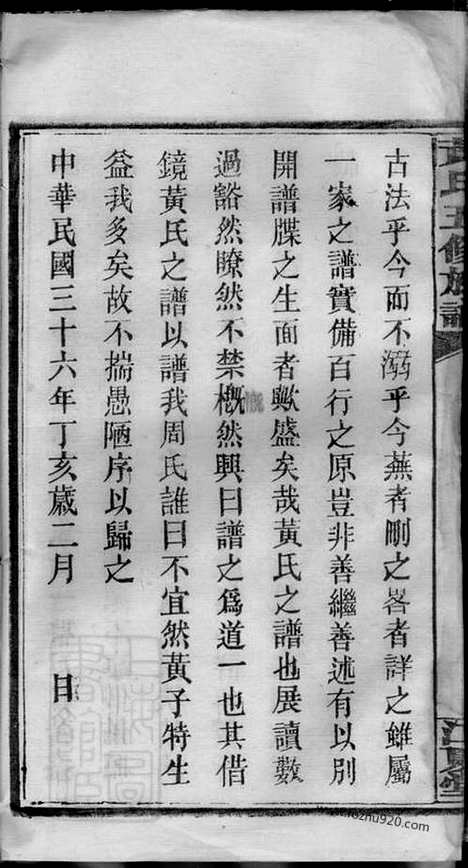 古法乎今而不溺乎今蕪者刪之畧者詳之雖屬
一家之譜實備百行之原豈非善繼善述有以別
開譜牒之生面者歟盛矣哉黃氏之譜也展讀數
過豁然瞭然不禁概然興曰譜之爲道一也其借
鏡黃氏之譜以譜我周氏誰曰不宜然黃子特生
益我多矣故不揣愚陋序以歸之
中華民國三十六年丁亥歲二月　　日
黃氏五修族譜
江夏堂